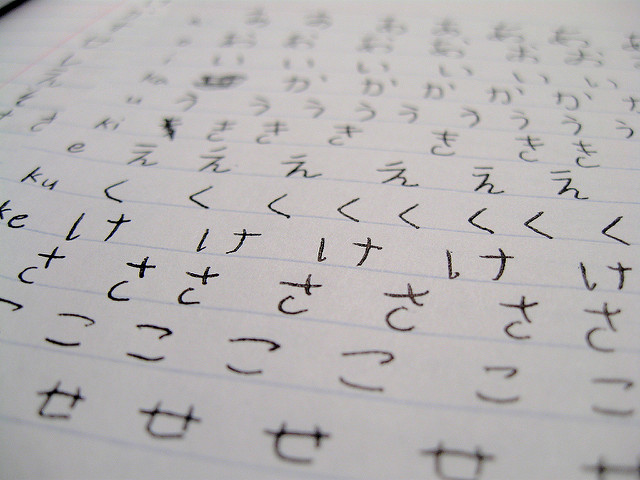 あ あ あ あ
お お お お お お
i い い い い い い
か か か か か
u う う う う う う う う う
ki き き き き き き
e え え え え え え
ku く く く く く く く く
ke け け け け け
さ さ さ さ さ さ さ
こ こ こ こ こ こ
せ せ せ せ